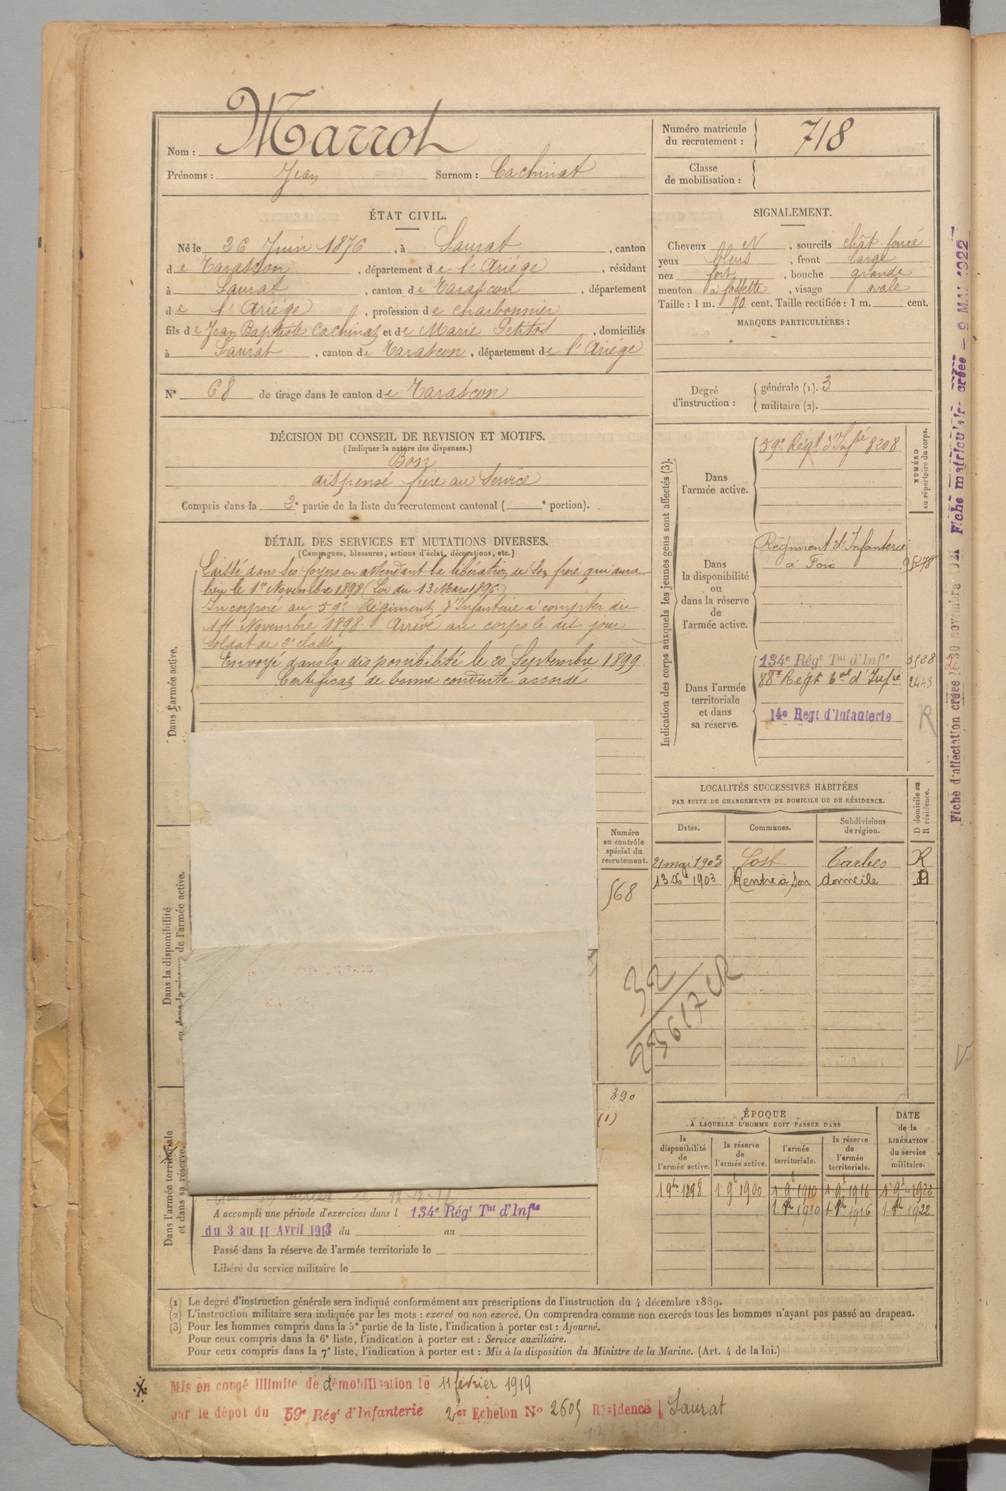 Nom : Marrot
Prénoms : Jean Surnom : Cachinat
Numéro matricule
du recrutement : 718
Classe
de mobilisation :
ÉTAT CIVIL.
Né le 26 Juin 1876, à Saurat, canton
de Tarascon, département de l'Ariége, résidant
à Saurat, canton de Tarascon, département
de l'Ariége, profession de charbonnier
fils de Jean Baptiste Cachinat et de Marie Petitos, domiciliés
à Saurat, canton de Tarascon, département de l'Ariége
N° 68 de tirage dans le canton de Tarascon
SIGNALEMENT.
Cheveux N, sourcils chât foncé
yeux bleus, front large
nez fort, bouche grande
menton à fossette, visage ovale
Taille : 1 m. 70 cent. Taille rectifiée : 1 m. cent.
MARQUES PARTICULIÈRES :
Degré
d'instruction :
générale (1). 3
militaire (2).
DÉCISION DU CONSEIL DE REVISION ET MOTIFS.
(Indiquer la nature des dispenses.)
Bon
dispensé frère au Service
Compris dans la 3e partie de la liste du recrutement cantonal ( e portion).
DÉTAIL DES SERVICES ET MUTATIONS DIVERSES.
(Campagnes, blessures, actions d'éclat, décorations, etc.)
Dans l'armée active.
Laissé dans ses foyers en attendant la libération de son frère qui aura
lieu le 1er Novembre 1898 (Loi du 13 Mars 1896)
Incorporé au 59e Régiment d'Infanterie à compter du
14 Novembre 1898 Arrivé au corps le dit jour
soldat de 2e classe
Envoyé dans la disponibilité le 20 Septembre 1899
Certificat de bonne conduite accordé
Indication des corps auxquels les jeunes gens sont affectés (3).
NUMÉRO
au répertoire du corps.
Dans
l'armée active.
59e Régt d'Infie 8208
Dans
la disponibilité
ou
dans la réserve
de
l'armée active.
Régiment d'Infanterie
à Foix
Dans l'armée
territoriale
et dans
sa réserve.
134e Régt Tal d'Infie
88e Regt tal d'Infie
14e Regt d'Infanterie
R
LOCALITÉS SUCCESSIVES HABITÉES
PAR SUITE DE CHANGEMENTS DE DOMICILE OU DE RÉSIDENCE.
Dates. Communes. Subdivisions
de région.
D domicile ou
R résidence.
21 mai 1903 Sost Tarbes R
13 Xbre 1903 Rentre à son domicile D
Dans la disponibilité
ou dans la réserve de l'armée active.
Numéro
au contrôle
spécial du
recrutement.
568
32
23617 CR
390
(1)
ÉPOQUE
À LAQUELLE L'HOMME DOIT PASSER DANS
la
disponibilité
de
l'armée active.
la réserve
de
l'armée active.
l'armée
territoriale.
la réserve
de
l'armée
territoriale.
DATE
de la
LIBÉRATION
du service
militaire.
1 9bre 1898 1 9 1900 1 9 1910 1 9 1916 1 9 1922
1 8bre 1910 1 8bre 1916 1 8bre 1922
Dans l'armée territoriale
et dans sa réserve.
A accompli une période d'exercices dans l 134e Régt Tal d'Infie
du 3 au 11 Avril 1913 du au
Passé dans la réserve de l'armée territoriale le
Libéré du service militaire le
(1) Le degré d'instruction générale sera indiqué conformément aux prescriptions de l'instruction du 4 décembre 1889.
(2) L'instruction militaire sera indiquée par les mots : exercé ou non exercé. On comprendra comme non exercés tous les hommes n'ayant pas passé au drapeau.
(3) Pour les hommes compris dans la 5e partie de la liste, l'indication à porter est : Ajourné.
Pour ceux compris dans la 6e liste, l'indication à porter est : Service auxiliaire.
Pour ceux compris dans la 7e liste, l'indication à porter est : Mis à la disposition du Ministre de la Marine. (Art. 4 de la loi.)
Mis en congé illimité de démobilisation le 11 février 1919
par le dépot du 59e Régt d'Infanterie 2er Echelon No 2605 Résidence Saurat
Fiche matriculaire créée - 9 MAI 1922